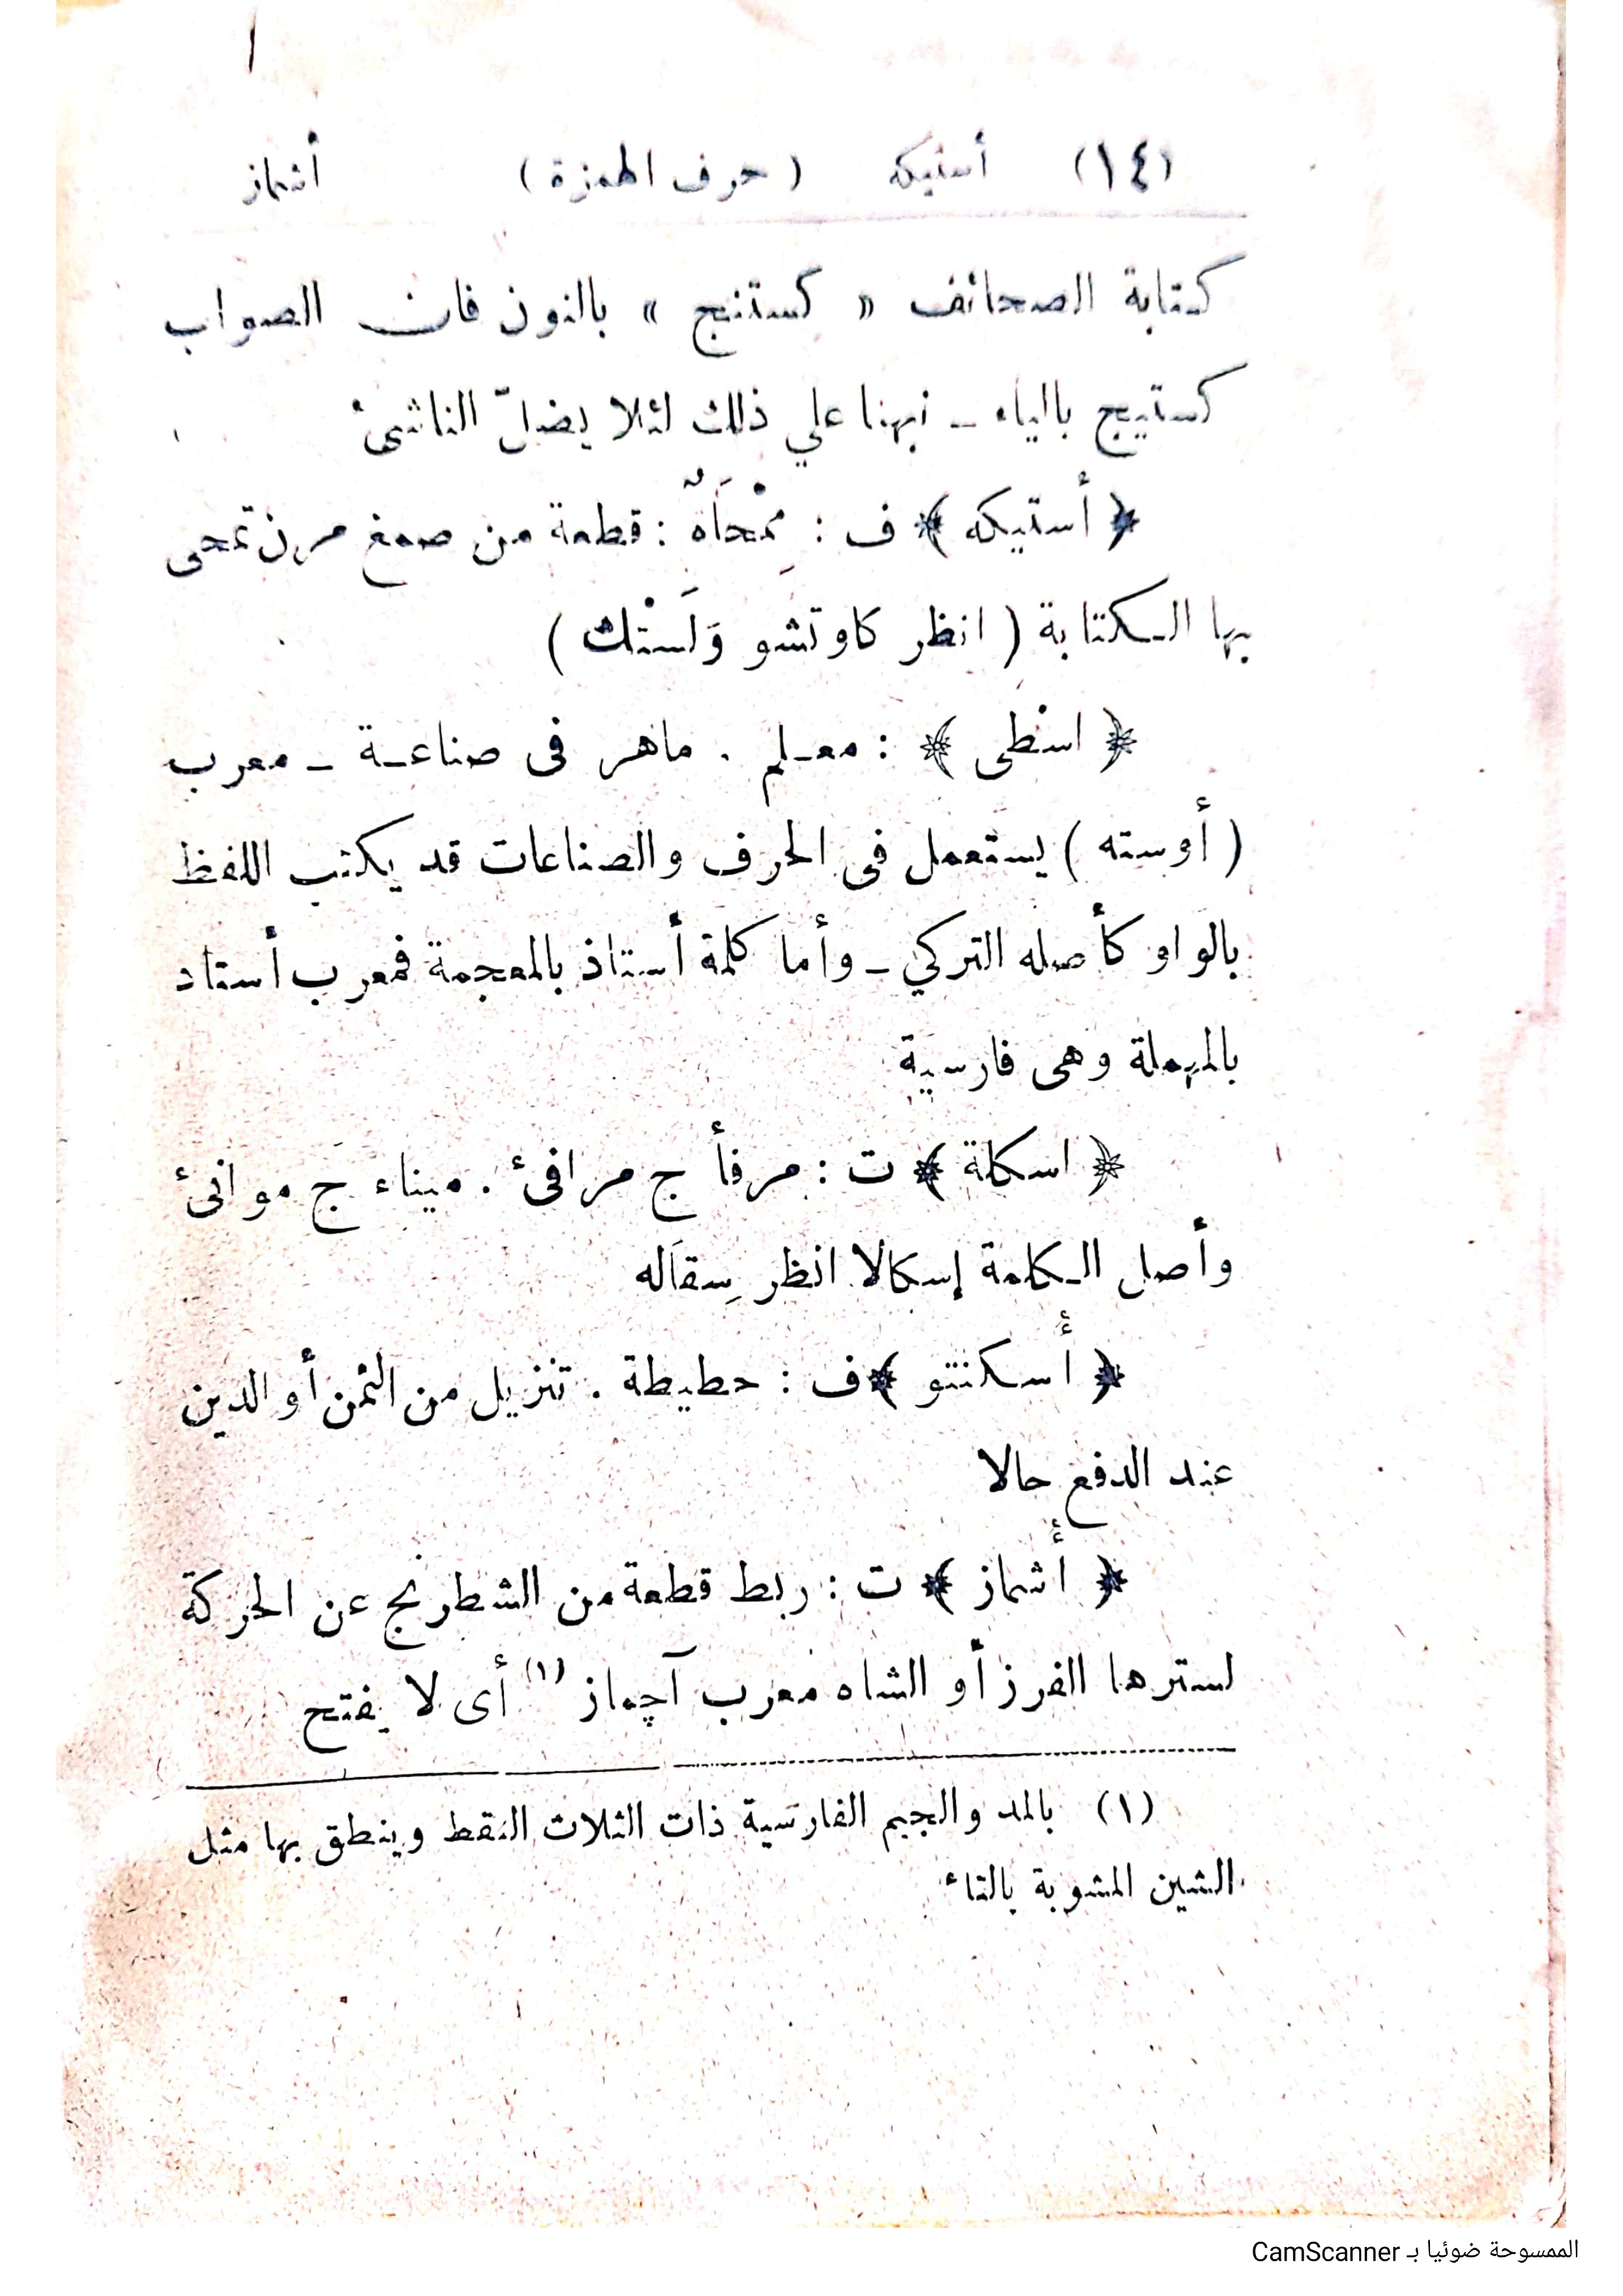 (١٤) أستيكه (حرف الهمزة) أشماز
كتابة الصحائف « كستنج » بالنون فان الصواب
كستيج بالياء ـ نبهنا علي ذلك لئلا يضلّ الناشئ
﴿ أستيكه ﴾ ف : مِمْحَاةٌ : قطعة من صمغ مرن تمحى
بها الكتابة ( انظر كاوتشو وَلَستْك )
﴿ اسْطى ﴾ : معلم . ماهر فى صناعة ـ معرب
( أوسته ) يستعمل فى الحرف والصناعات قد يكتب اللفظ
بالواو كأصله التركي ـ وأما كلمة أستاذ بالمعجمة فمعرب أستاد
بالمهملة وهى فارسية
﴿ اسكلة ﴾ ت : مرفأ ج مرافئ . ميناء ج موانئ
وأصل الكلمة إسكالا انظر سِقَاله
﴿ أُسكنتو ﴾ ف : حطيطة . تنزيل من الثمن أو الدين
عند الدفع حالا
﴿ أُشماز ﴾ ت : ربط قطعة من الشطرنج عن الحركة
لسترها الفرز أو الشاه معرب آچماز (١) أى لا يفتح
(١) بالمد والجيم الفارسية ذات الثلاث النقط وينطق بها مثل
الشين المشوبة بالتاء
الممسوحة ضوئيا بـ CamScanner